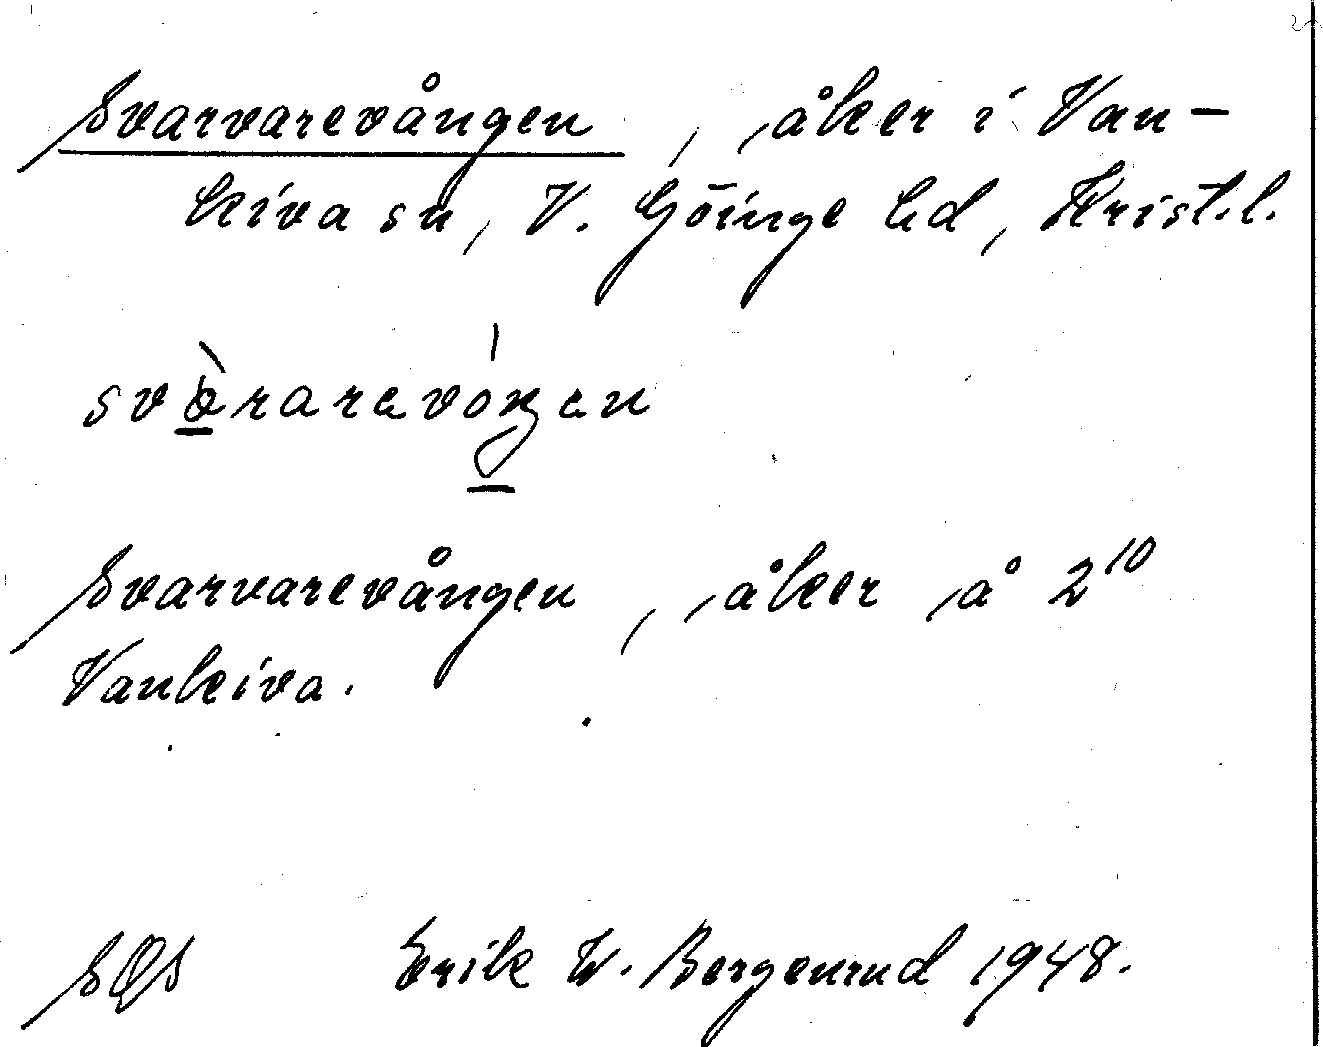 Svarvarevången, åker i Van-
kiva sn, V. Göinge hd, Krist.l.
svàrarevóŋen
Svarvarevången, åker å 2¹⁰
Vankiva.
SOS Erik W. Bergenrud 1948.